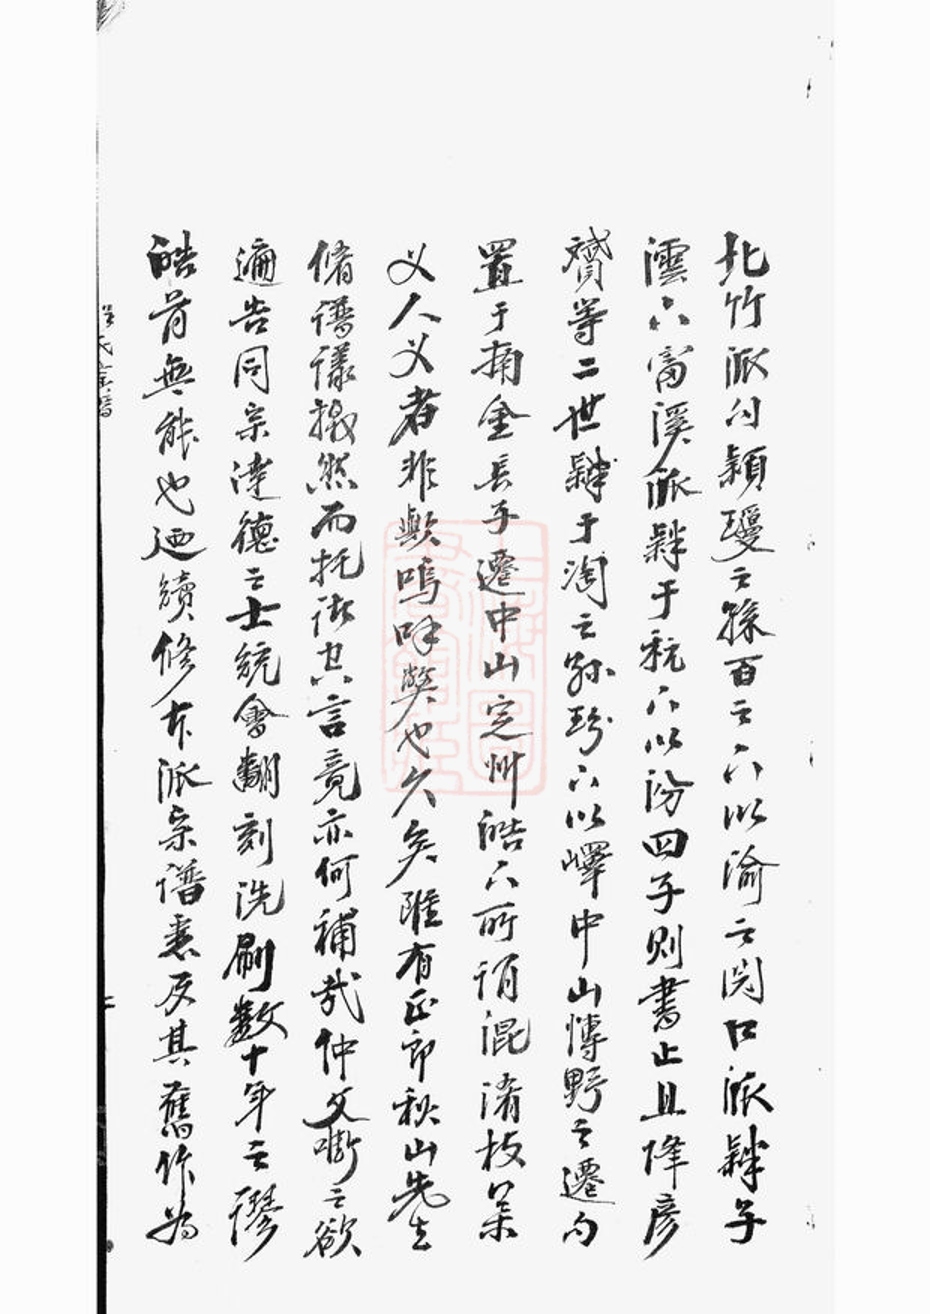 北竹派勻穎璦之孫百之下以渝之閔口派肄子
澐下富溪派肄于秔下以汾四子則書止且降彥
贇等二世肄于淘之孫玢下以嶧中山博野之遷勻
置于蒳金長子遷中山定州皓下所謂混淆枝葉
父人父者非歟嗚呼獘也久矣雖有正郎秋山先生
脩譜議掇然而托詠空言竟亦何補哉仲文嘶之欲
遍告同宗達德之士統會翻刻洗刷數十年之謬
皓首無能也迺續修本派宗譜悉反其舊作為